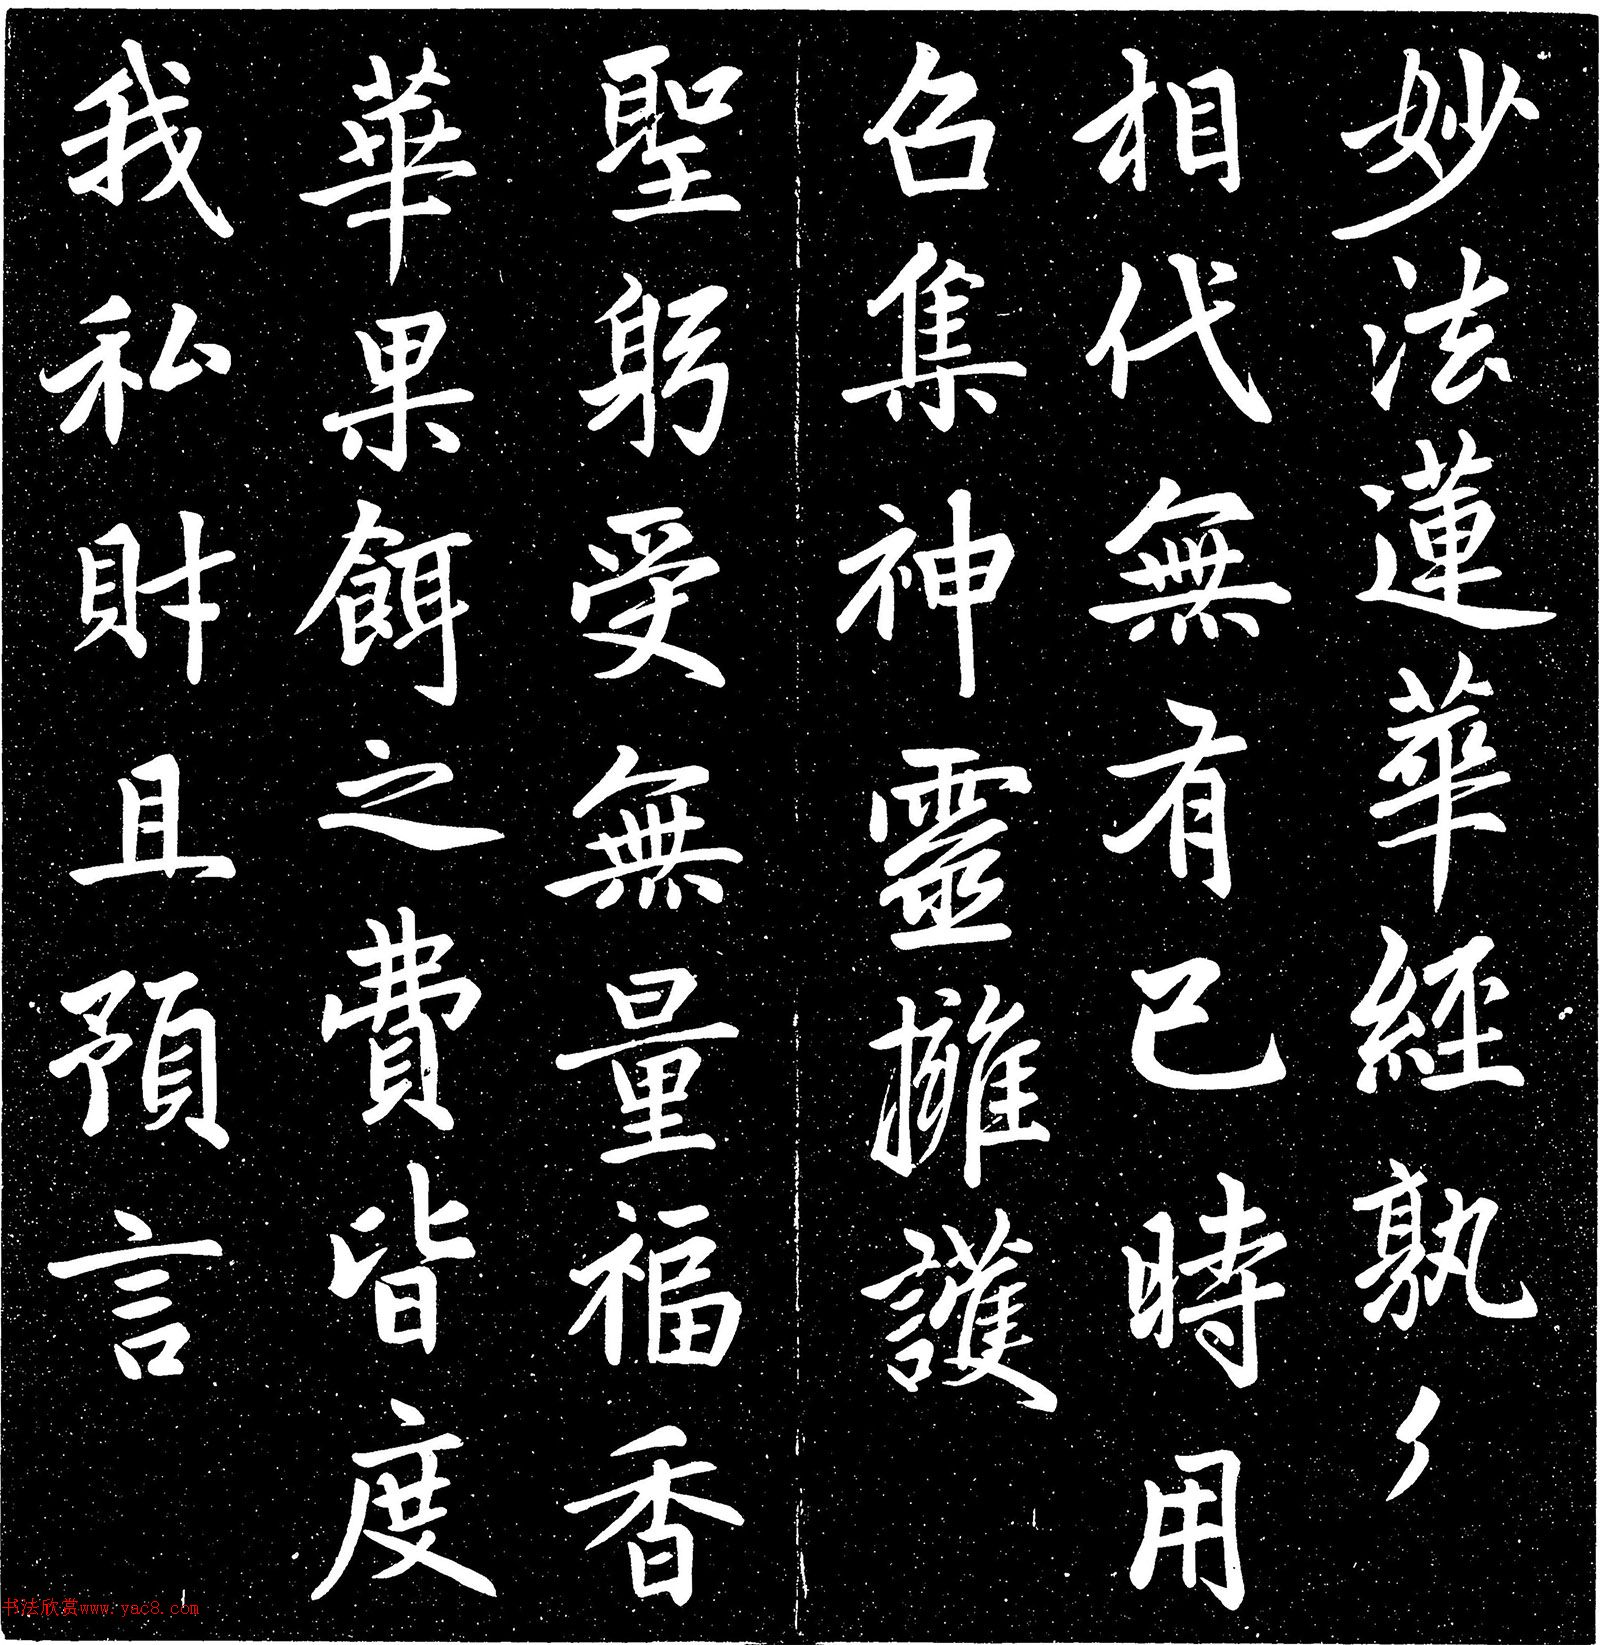 妙法蓮華經孰〻
相代無有已時用
召集神靈擁護
聖躬受無量福香
華果餌之費皆度
我私財且預言
书法欣赏www.yac8.com